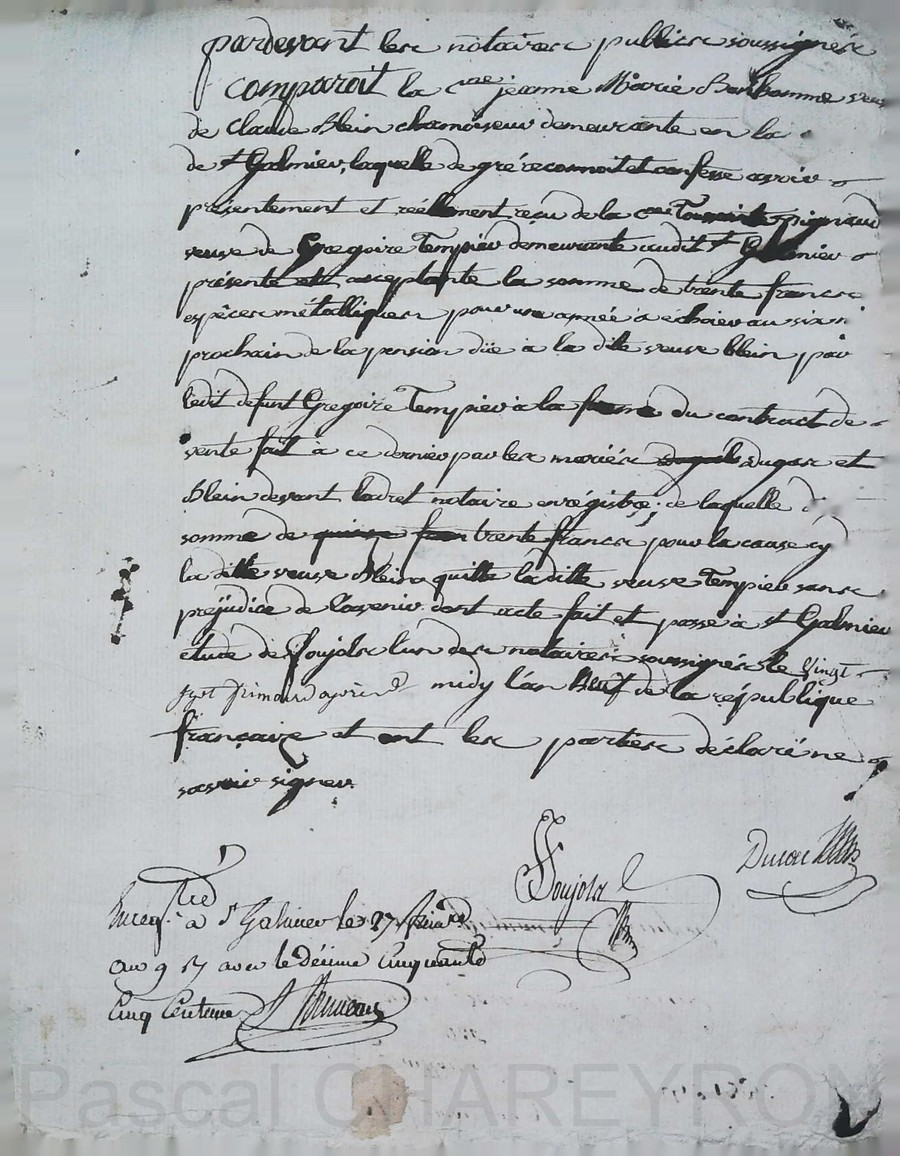 pardevant les notaires publics soussignés
comparait la cne jeanne Marie Bonhomme veuve
de Claude Blein chamoiseur demeurante en la
de st Galmier, laquelle de gré reconnoit et confesse avoir
présentement et réellement reçu de la cne Pignaud
veuve de Gregoire Tempier demeurante audit st Galmier
présente et acceptante la somme de trente francs
espèces métalliques pour une année à échoir au six
prochain de la pension düe à la dite veuve blein par
ledit defunt Gregoire Tempier à la forme du contract de
vente fait à ce dernier par les mariés Dugas et
Blein devant ladret notaire enrégistré; de laquelle
somme de trente francs pour la cause cy
la ditte veuve Blein quitte la ditte veuve Tempier sans
préjudice de l'avenir. dont acte fait et passé à st Galmier
étude de Soujols l'un des notaires soussignés le vingt
sept frimaire après midy l'an neuf de la république
française et ont les parties déclaré ne
savoir signer
Soujols
Enreg. à st Galmier le 27 frimaire
an 9 avec le décime Cinquante
Cinq Centimes
Pascal CHAREYRON